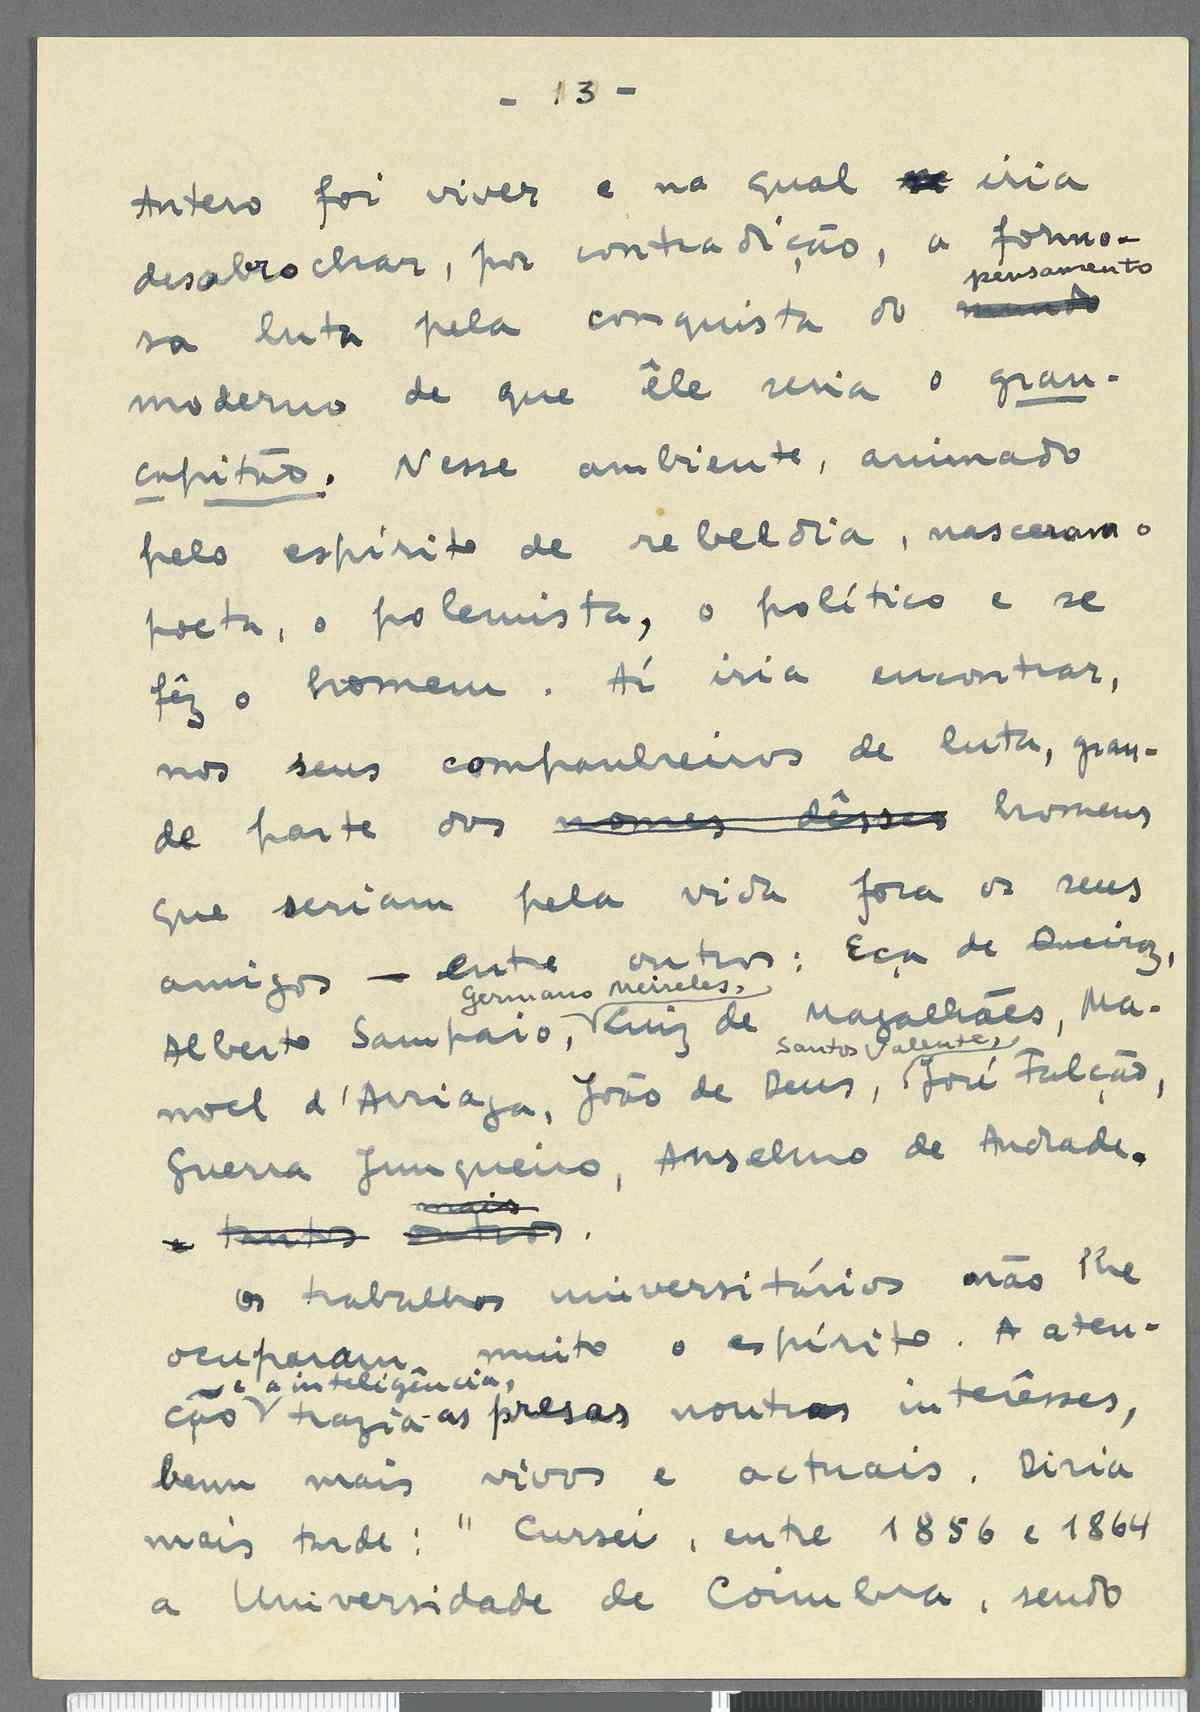 - 13 -
Antero foi viver e na qual se iria
desabrochar, por contradição, a formo-
pensamento
sa luta pela conquista do mundo
moderno de que êle seria o gran-
capitão. Nesse ambiente, animado
pelo espírito de rebeldia, nasceram o
poeta, o polemista, o político e se
fêz o homem. Aí iria encontrar,
nos seus companheiros de luta, gran-
de parte dos nomes dêsses homens
que seriam pela vida fora os seus
amigos — entre outros: Eça de Queiroz,
Germano Meireles,
Alberto Sampaio, Luiz de Magalhães, Ma-
Santos Valente,
noel d'Arriaga, João de Deus, José Falcão,
Guerra Junqueiro, Anselmo de Andrade.
mais
e tantos outros.
Os trabalhos universitários não lhe
ocuparam muito o espírito. A aten-
e a inteligência,
ção trazia-as presas noutros interêsses,
bem mais vivos e actuais. Diria
mais tarde: "Cursei, entre 1856 e 1864
a Universidade de Coimbra, sendo